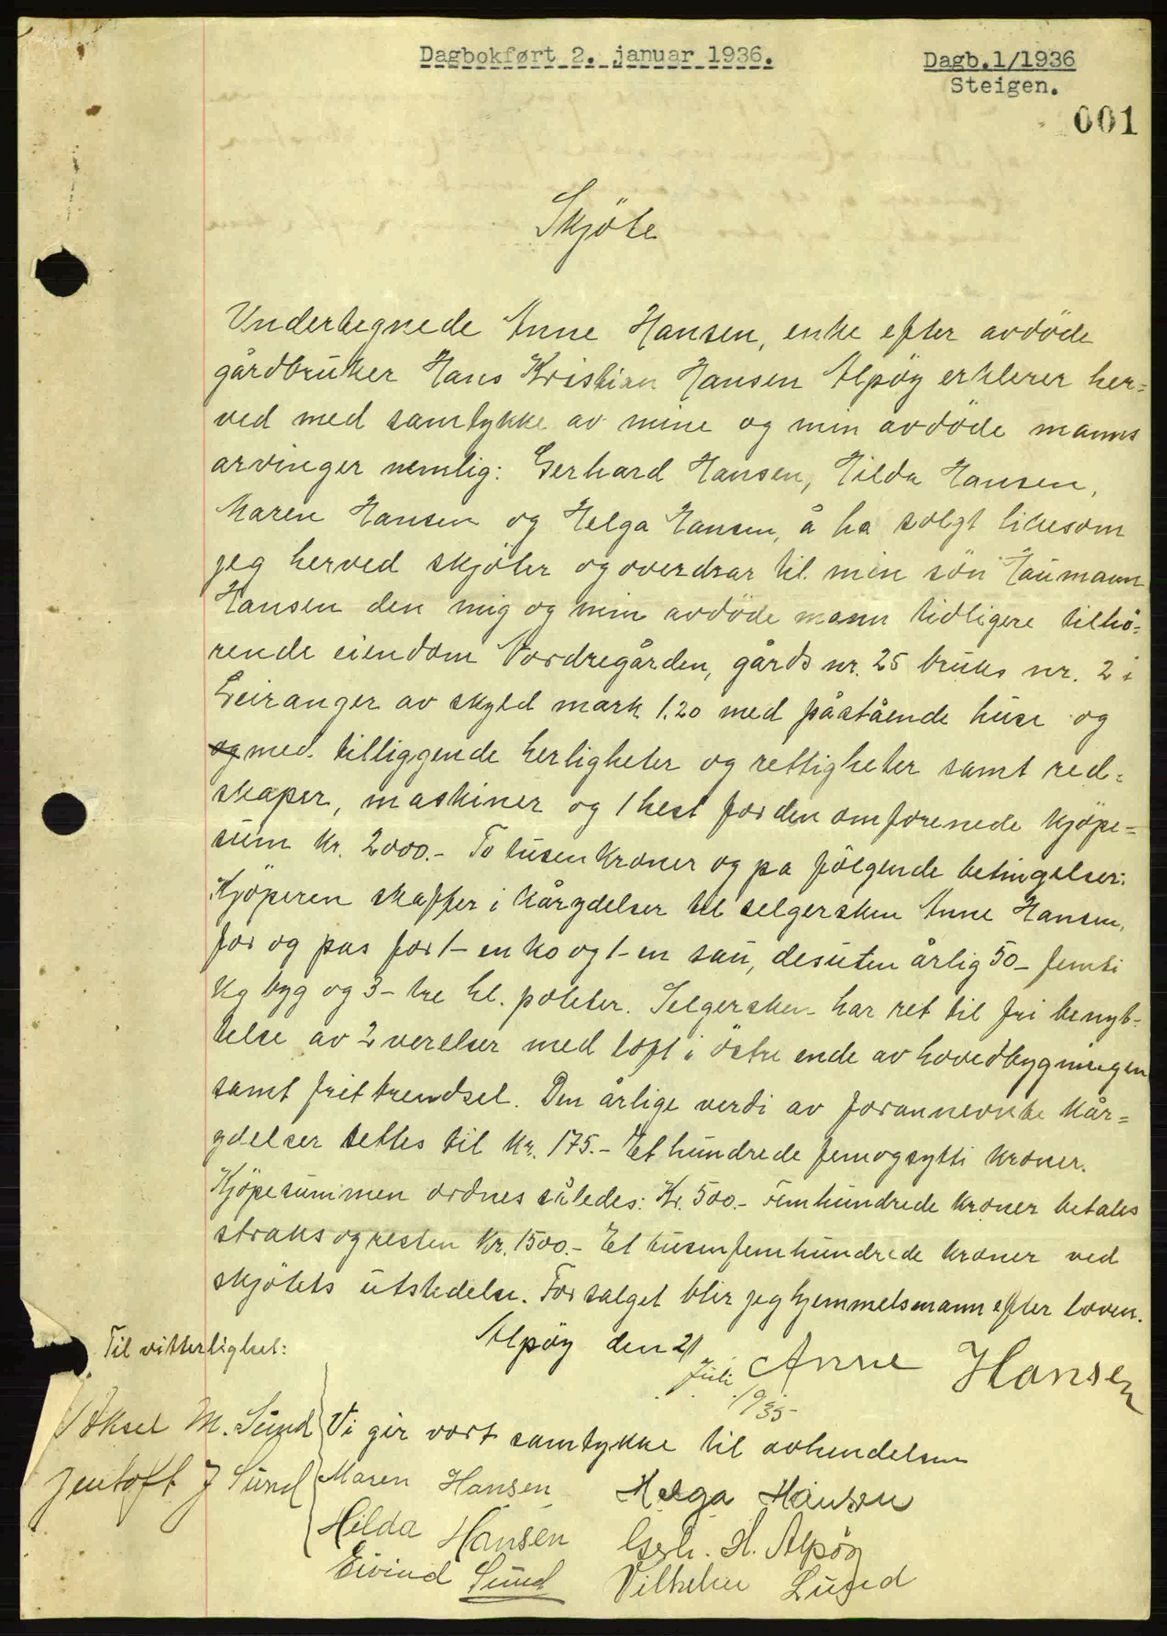 Dagbokført 2. januar 1936.
Dagb.1/1936
Steigen.
001
Skjöte
Undertegnede Anne Hansen, enke efter avdöde
gårdbruker Hans Kristian Hansen Alpöy erklerer her=
ved med samtykke av mine og min avdöde manns
arvinger nemlig: Gerhard Hansen, Hilda Hansen,
Maren Hansen og Helga Hansen, å ha solgt likesom
jeg herved skjöter og overdrar til min sön Haumann
Hansen den mig og min avdöde mann tidligere tilhö=
rende eiendom Nordregården, gårds nr. 25 bruks nr. 2 i
Leiranger av skyld mark 1.20 med påstående huse og
og med. tilliggende herligheter og rettigheter samt red=
skaper, maskiner og 1 hest for den omforenede kjöpe=
sum kr. 2000.- To tusen kroner og pa fölgende betingelser:
Kjöperen skaffer i kårydelser til selgersken Anne Hansen,
for og pas for 1- en ko og 1- en sau, desuten årlig 50- femti
kg byg og 3- tre hl. poteter. Selgersken har ret til fri benyt-
telse av 2 verelser med loft i östre ende av hovedbygningen
samt frit brendsel. Den årlige verdi av forannevnte kår=
ydelser settes til kr. 175.- Et hundrede femogsytti kroner.
Kjöpesummen ordnes således: Kr. 500.- Femhundrede kroner betales
straks og resten kr. 1500.- Et tusen femhundrede kroner ved
skjötets utstedelse. For salget blir jeg hjemmelsmann efter loven.
Alpöy den 21
Juli
1935-
Anne Hansen
Til vitterlighet:
Aksel M. Sund
Jentoft J Sund
Vi gir vort samtykke til avhendelsen
Maren Hansen Helga Hansen
Hilda Hansen Gerh. H. Alpöy
Eivind Sund Vilhelm Lund